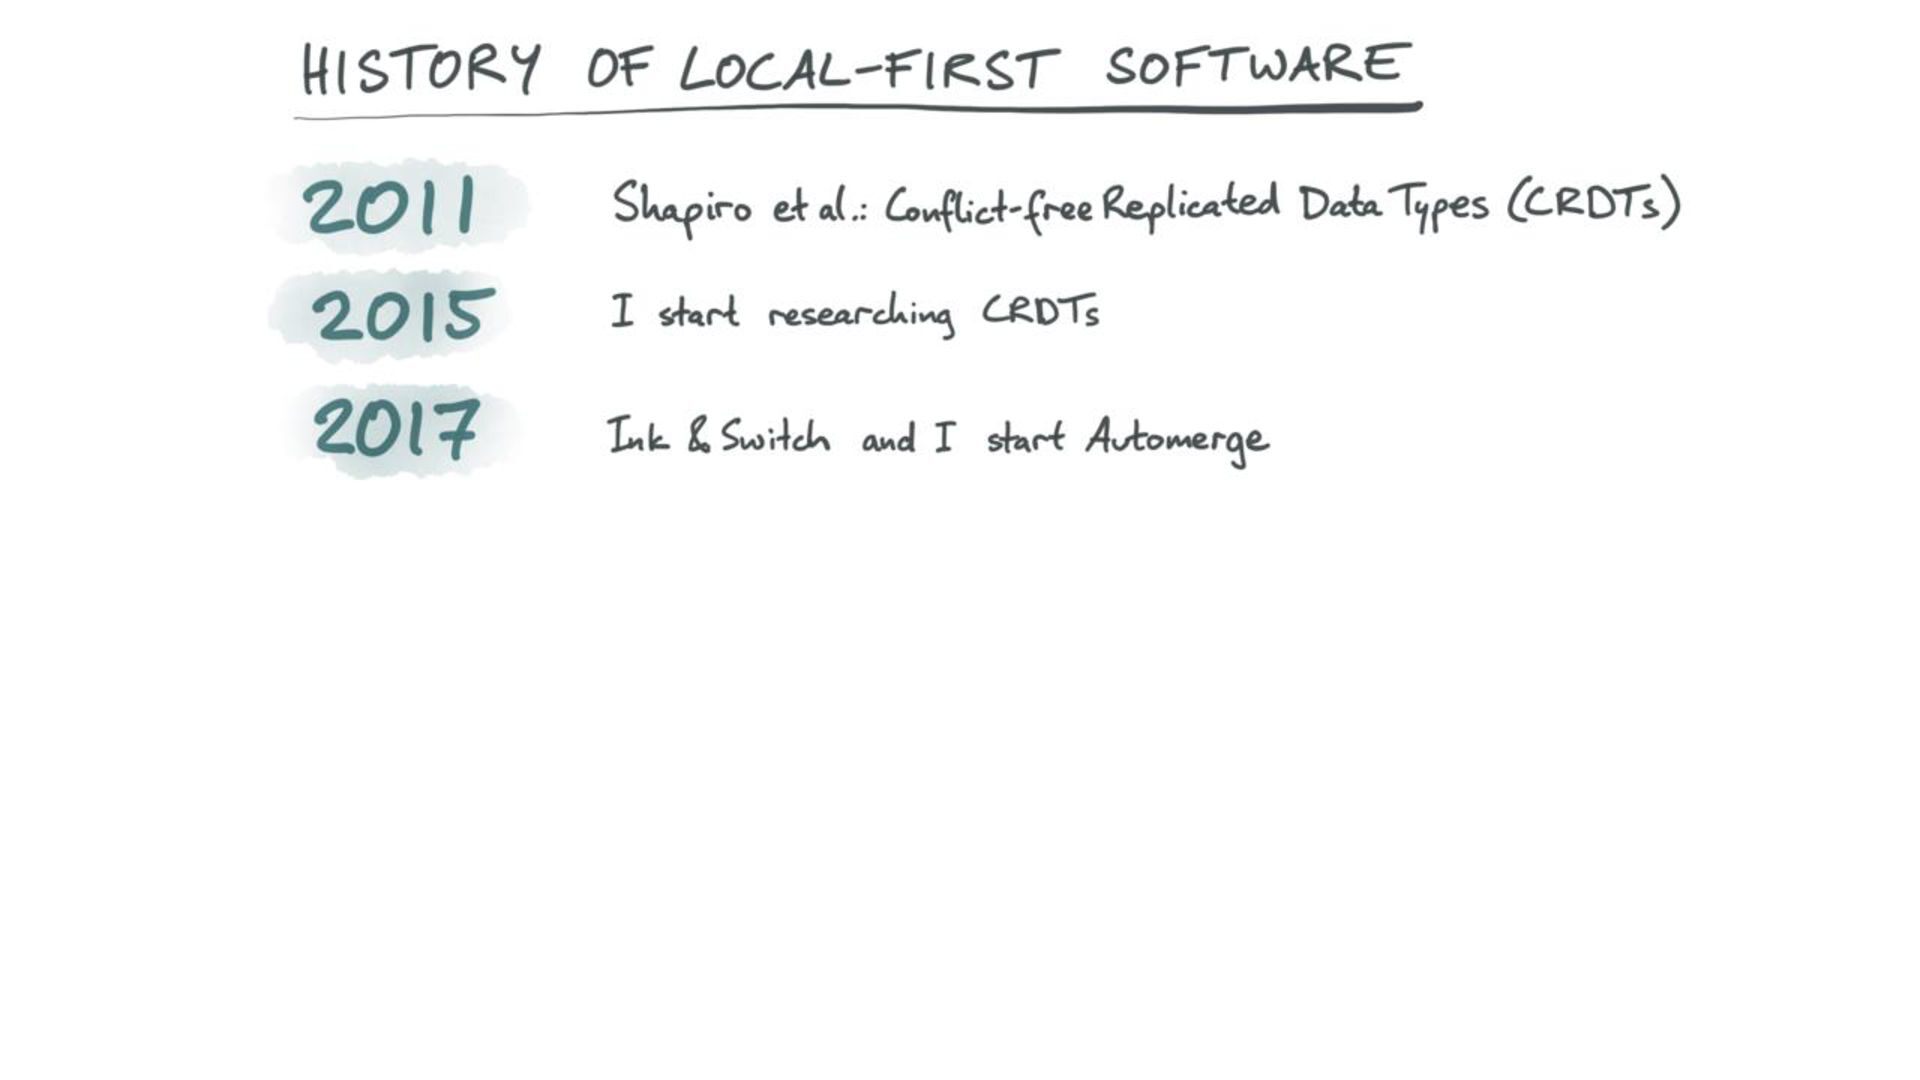 HISTORY OF LOCAL-FIRST SOFTWARE
2011 Shapiro et al.: Conflict-free Replicated Data Types (CRDTs)
2015 I start researching CRDTs
2017 Ink & Switch and I start Automerge